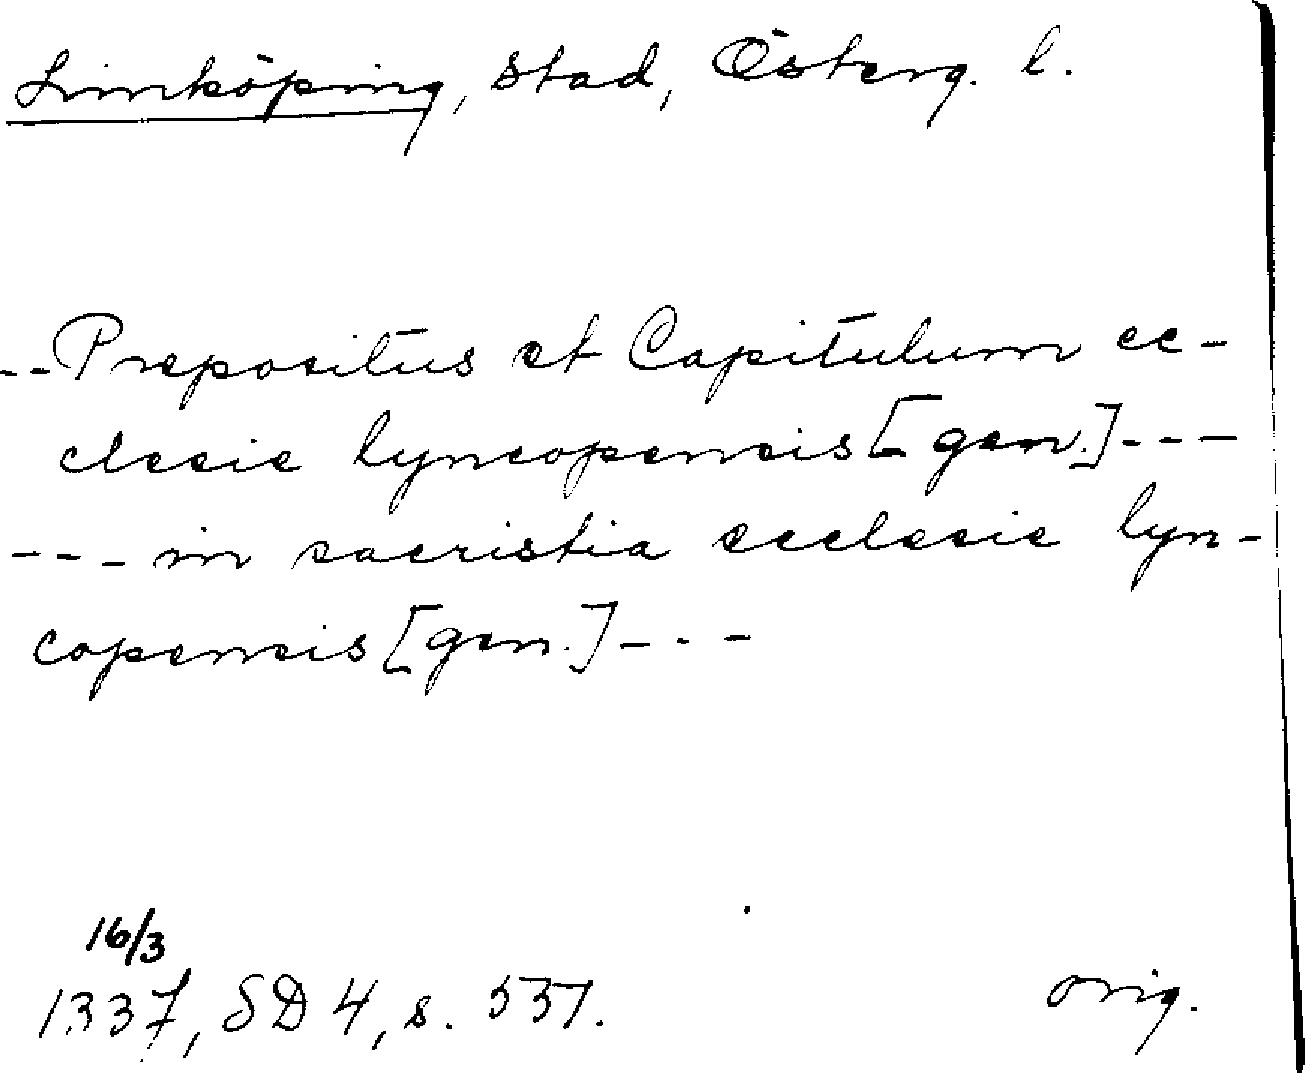 Linköping, stad, Österg. l.
--Prepositus et Capitulum ec-
clesie lyncopensis [gen.]---
--- in sacristia ecclesie lyn-
copensis [gen.]---
16/3
1337, SD 4, s. 537.
orig.